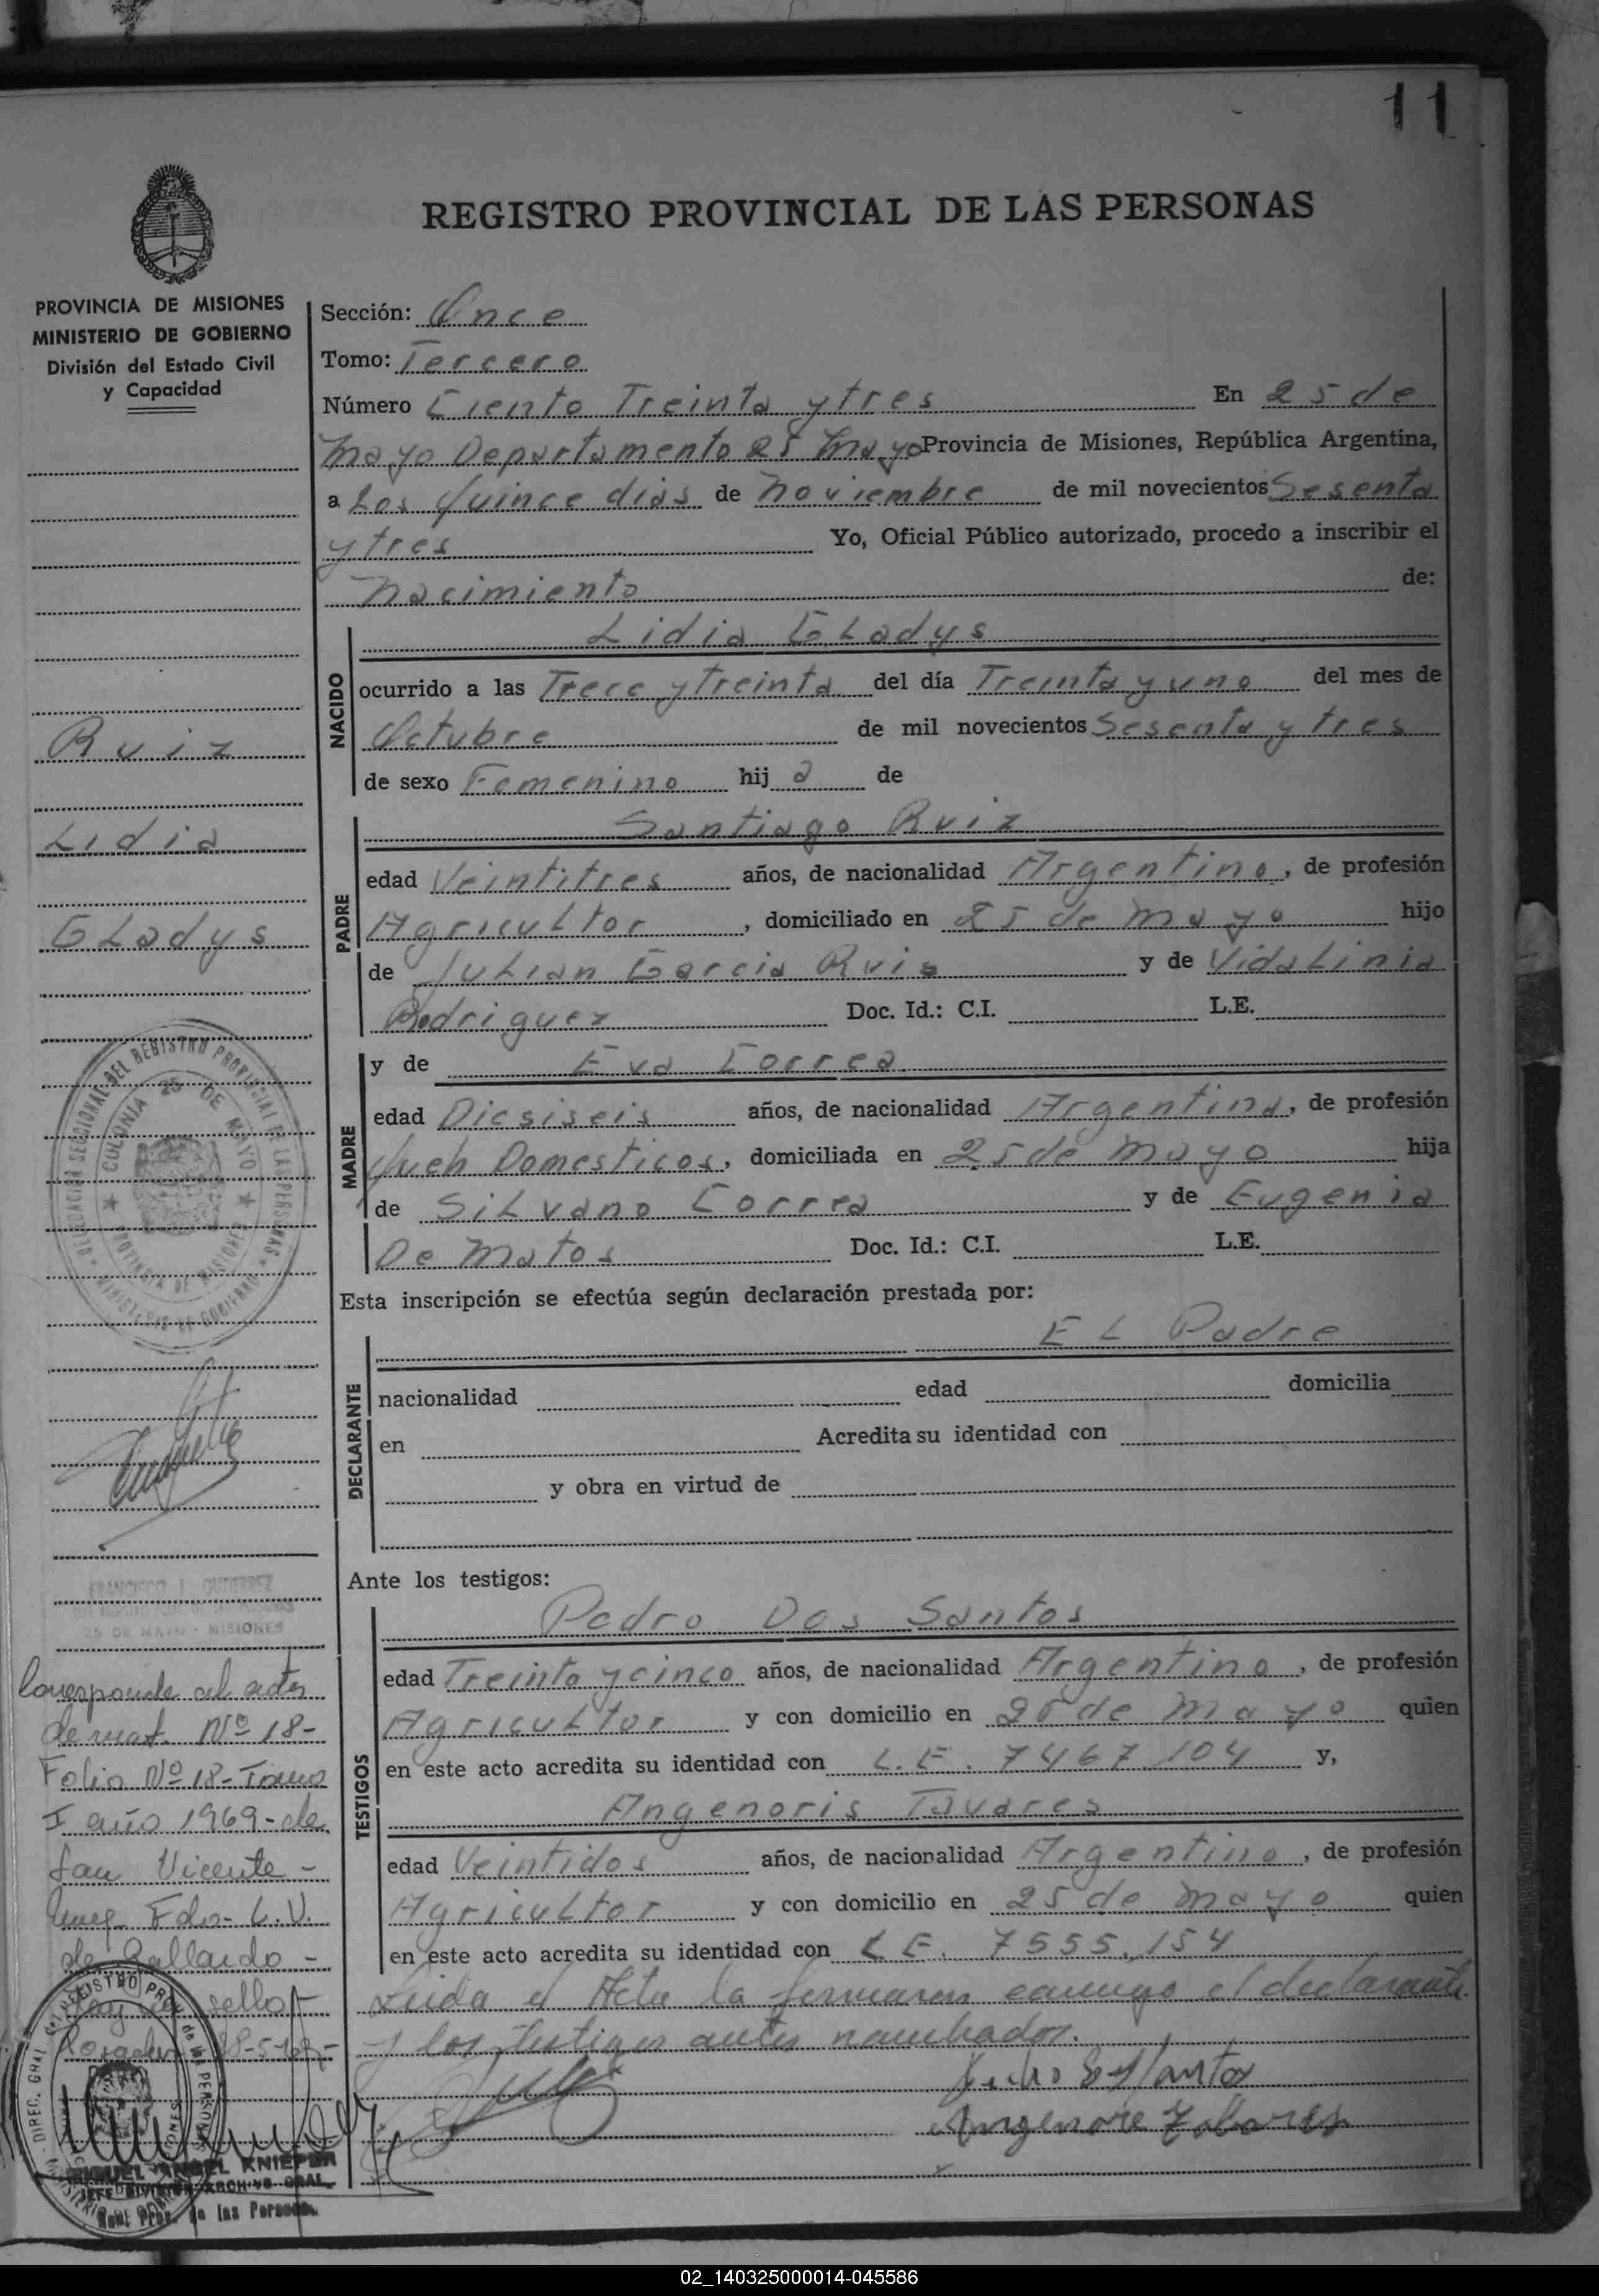 11
REGISTRO PROVINCIAL DE LAS PERSONAS
PROVINCIA DE MISIONES
MINISTERIO DE GOBIERNO
División del Estado Civil
y Capacidad
Ruiz
Lidia
GLadys
DELEGACION SECCIONAL DEL REGISTRO PROVINCIAL DE LAS PERSONAS
COLONIA 25 DE MAYO
PROVINCIA DE MISIONES
MINISTERIO DE GOBIERNO
FRANCISCO GUTIERREZ
25 DE MAYO - MISIONES
Corresponde al acta
de mat. Nº 18-
Folio Nº 18-Tomo
I año 1969-de
San Vicente-
Fdo- L.V.
de Gallardo-
Hay sello
Posadas
MIGUEL ANGEL KNIEPER
JEFE DIVISION ARCHIVO GRAL.
de las Personas
Sección: Once
Tomo: Tercero
Número Ciento Treinta y tres En 25 de
Mayo Departamento 25 Mayo Provincia de Misiones, República Argentina,
a Los Quince dias de Noviembre de mil novecientos Sesenta
y tres Yo, Oficial Público autorizado, procedo a inscribir el
Nacimiento de:
NACIDO
Lidia GLadys
ocurrido a las Trece y treinta del día Treinta y uno del mes de
Octubre de mil novecientos Sesenta y tres
de sexo Femenino hij a de
PADRE
Santiago Ruiz
edad Veintitres años, de nacionalidad Argentino, de profesión
AgricuLtor, domiciliado en 25 de Mayo hijo
de JuLian Garcia Ruis y de VidaLinia
Rodriguez Doc. Id.: C.I. L.E.
MADRE
y de Eva Correa
edad Diesiseis años, de nacionalidad Argentina, de profesión
Queh Domesticos, domiciliada en 25 de Mayo hija
de SiLvano Correa y de Eugenia
De Matos Doc. Id.: C.I. L.E.
Esta inscripción se efectúa según declaración prestada por:
DECLARANTE
EL Padre
nacionalidad edad domicilia
en Acredita su identidad con
y obra en virtud de
Ante los testigos:
TESTIGOS
Pedro Dos Santos
edad Treinta y cinco años, de nacionalidad Argentino, de profesión
AgricuLtor y con domicilio en 25 de Mayo quien
en este acto acredita su identidad con L.E. 7467.104 y,
Angenoris Tavares
edad Veintidos años, de nacionalidad Argentino, de profesión
AgricuLtor y con domicilio en 25 de Mayo quien
en este acto acredita su identidad con L.E. 7555.154
Leida el Acta la firmaron conmigo el declarante
y los testigos antes nombrados.
02_140325000014-045586